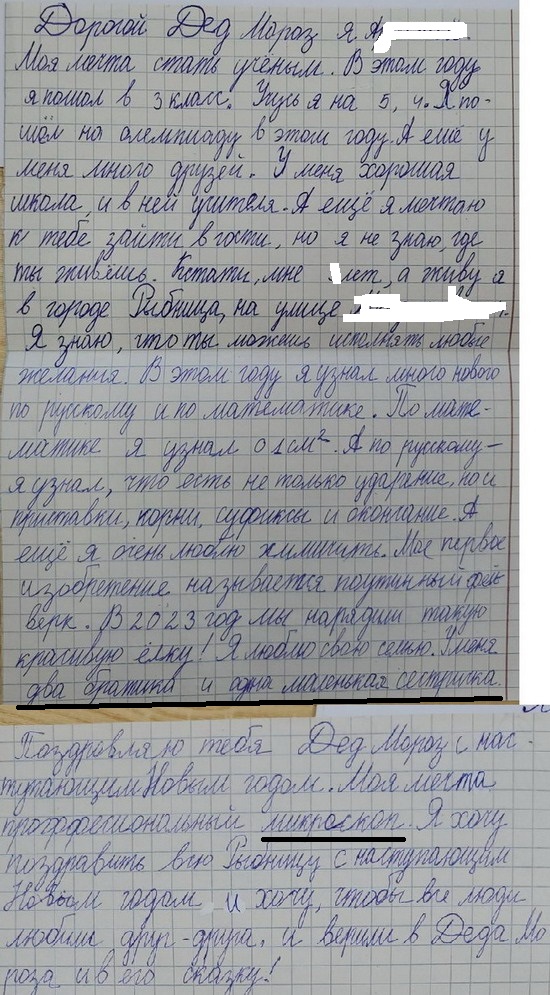 Дорогой Дед Мороз я А
Моя мечта стать учёным. В этом году
я пошол в 3 класс. Учусь я на 5, 4. Я по-
шём на олемпиаду в этом году. А ещё у
меня много друзей. У меня хорошая
школа, и в ней учителя. А ещё я мечтаю
к тебе зайти в гости, но я не знаю, где
ты живёшь. Кстати, мне лет, а живу я
в городе Рыбница, на улице
Я знаю, что ты можешь исполнять любые
желания. В этом году я узнал много нового
по русскому и по математике. По мате-
матике я узнал о 1 см². А по русскому –
я узнал, что есть не только ударение, но и
приставки, корни, суфиксы и окончание. А
ещё я очень люблю химичить. Мое первое
изобретение называется паутинный фей-
верк. В 2023 год мы нарядили такую
красивую ёлку! Я люблю свою семью. У меня
два братика и одна маленькая сестричка.
Поздравляю тебя Дед Мороз с нас-
тупающим Новым годом. Моя мечта
профффесиональный микроскоп. Я хочу
поздравить всю Рыбницу с наступающим
Новым годом и хочу, чтобы все люди
любили друг-друга, и верили в Деда Мо
роза и в его сказку!